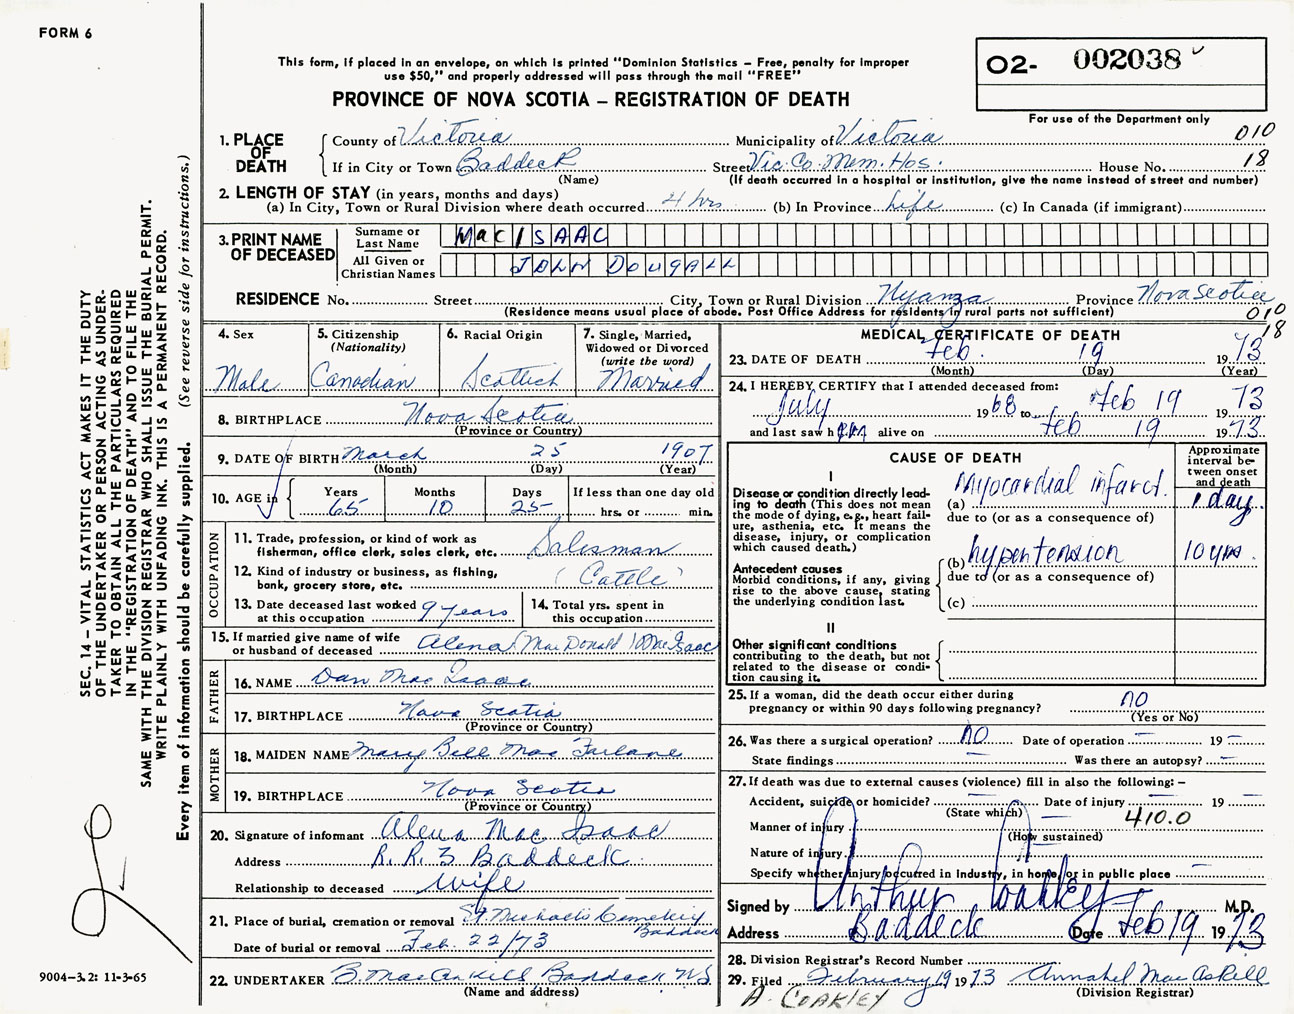 FORM 6
This form, if placed in an envelope, on which is printed "Dominion Statistics – Free, penalty for improper
use $50," and properly addressed will pass through the mail "FREE"
PROVINCE OF NOVA SCOTIA – REGISTRATION OF DEATH
02- 002038
For use of the Department only
010
18
1. PLACE OF DEATH
County of Victoria Municipality of Victoria
If in City or Town Baddeck Street Vic. Co. Mem. Hos. House No.
(Name) (If death occurred in a hospital or institution, give the name instead of street and number)
2. LENGTH OF STAY (in years, months and days)
(a) In City, Town or Rural Division where death occurred 4 hrs (b) In Province Life (c) In Canada (if immigrant)
3. PRINT NAME OF DECEASED
Surname or Last Name MacISAAC
All Given or Christian Names JOHN DOUGALL
RESIDENCE No. Street City, Town or Rural Division Nyanza Province Nova Scotia
(Residence means usual place of abode. Post Office Address for residents in rural parts not sufficient)
010
18
4. Sex Male
5. Citizenship (Nationality) Canadian
6. Racial Origin Scottish
7. Single, Married, Widowed or Divorced (write the word) Married
8. BIRTHPLACE Nova Scotia
(Province or Country)
9. DATE OF BIRTH March 25 1907
(Month) (Day) (Year)
10. AGE in Years 65 Months 10 Days 25 If less than one day old hrs. or min.
OCCUPATION
11. Trade, profession, or kind of work as
fisherman, office clerk, sales clerk, etc. Salesman
12. Kind of industry or business, as fishing,
bank, grocery store, etc. (Cattle)
13. Date deceased last worked
at this occupation 9 years
14. Total yrs. spent in
this occupation
15. If married give name of wife
or husband of deceased Alena (MacDonald) MacIsaac
FATHER
16. NAME Dan Mac Isaac
17. BIRTHPLACE Nova Scotia
(Province or Country)
MOTHER
18. MAIDEN NAME Mary Bell MacFarlane
19. BIRTHPLACE Nova Scotia
(Province or Country)
20. Signature of informant Alena Mac Isaac
Address R. R. 3 Baddeck
Relationship to deceased wife
21. Place of burial, cremation or removal St. Michael's Cemetery
Baddeck
Date of burial or removal Feb. 22/73
22. UNDERTAKER B. MacAskill Baddeck NS
(Name and address)
MEDICAL CERTIFICATE OF DEATH
23. DATE OF DEATH Feb. 19 1973
(Month) (Day) (Year)
24. I HEREBY CERTIFY that I attended deceased from:
July 1968 to Feb 19 1973
and last saw him alive on Feb 19 1973
CAUSE OF DEATH
Approximate interval between onset and death
I
Disease or condition directly leading to death (This does not mean the mode of dying, e.g., heart failure, asthenia, etc. It means the disease, injury, or complication which caused death.)
(a) Myocardial infarct. 1 day
due to (or as a consequence of)
Antecedent causes
Morbid conditions, if any, giving rise to the above cause, stating the underlying condition last.
(b) hypertension 10 yrs
due to (or as a consequence of)
(c)
II
Other significant conditions
contributing to the death, but not related to the disease or condition causing it.
25. If a woman, did the death occur either during
pregnancy or within 90 days following pregnancy? no
(Yes or No)
26. Was there a surgical operation? no Date of operation – 19 –
State findings – Was there an autopsy? –
27. If death was due to external causes (violence) fill in also the following:–
Accident, suicide or homicide? – Date of injury – 19 –
(State which)
Manner of injury – 410.0
(How sustained)
Nature of injury
Specify whether injury occurred in Industry, in home, or in public place –
Signed by Arthur Coakley M.D.
Address Baddeck Date Feb 19 1973
28. Division Registrar's Record Number
29. Filed February 19 1973 Annabel MacAskill
(Division Registrar)
A. COAKLEY
SEC. 14 – VITAL STATISTICS ACT MAKES IT THE DUTY
OF THE UNDERTAKER OR PERSON ACTING AS UNDER-
TAKER TO OBTAIN ALL THE PARTICULARS REQUIRED
IN THE "REGISTRATION OF DEATH" AND TO FILE THE
SAME WITH THE DIVISION REGISTRAR WHO SHALL ISSUE THE BURIAL PERMIT.
WRITE PLAINLY WITH UNFADING INK. THIS IS A PERMANENT RECORD.
Every item of information should be carefully supplied. (See reverse side for instructions.)
9004-3.2: 11-3-65